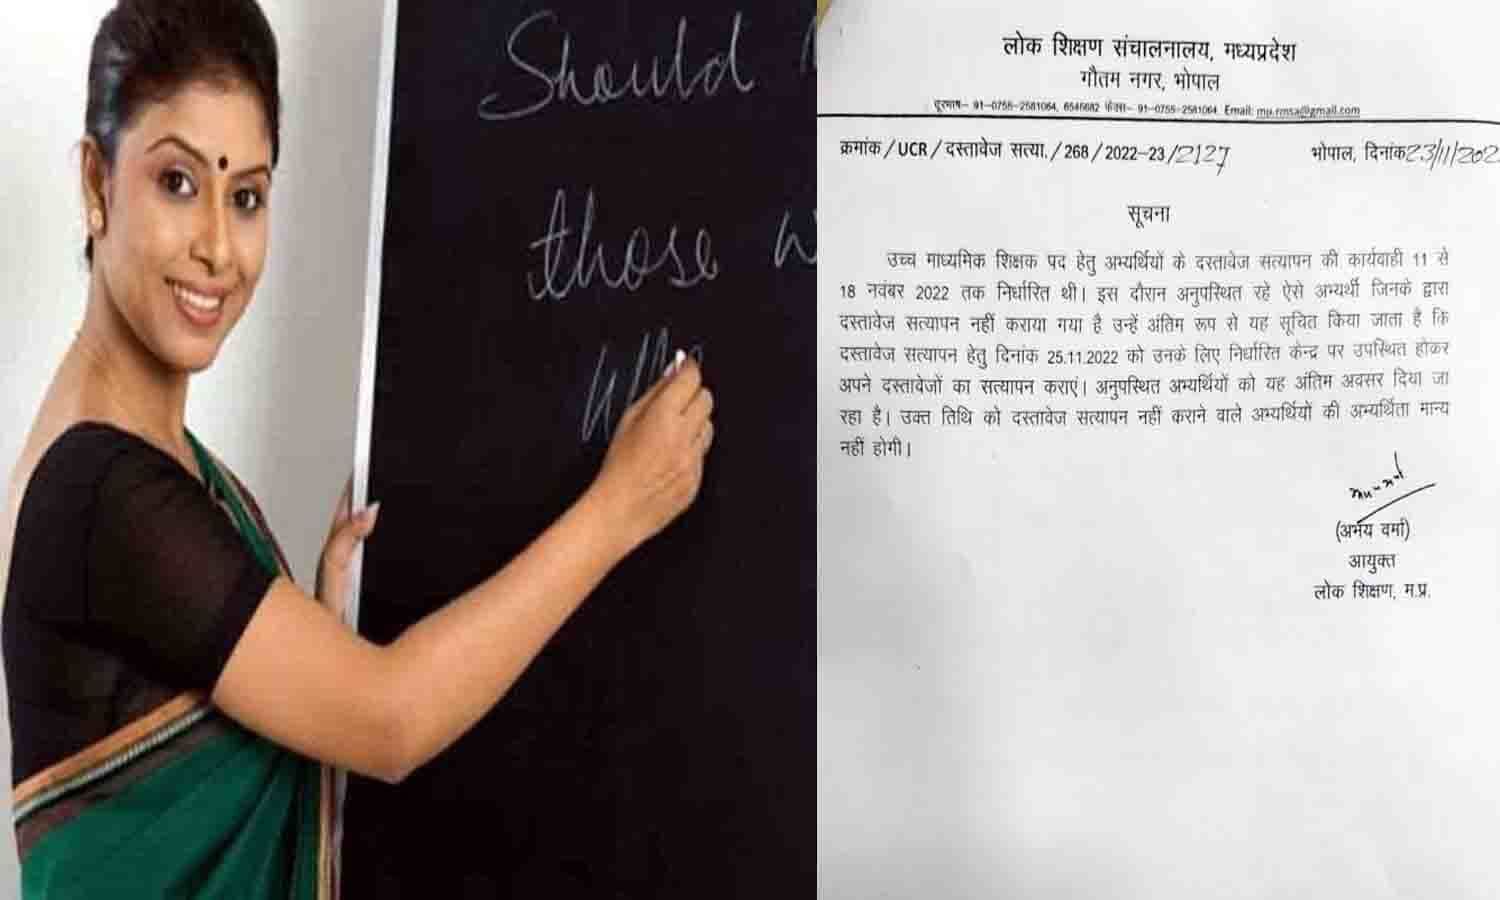 Should
those w
Who
लोक शिक्षण संचालनालय, मध्यप्रदेश
गौतम नगर, भोपाल
दूरभाष– 91–0755–2581064, 6546682 फेक्स– 91–0755–2581064, Email: mu.rmsa@gmail.com
क्रमांक/UCR/दस्तावेज सत्या./268/2022–23/2127 भोपाल, दिनांक 23/11/202
सूचना
उच्च माध्यमिक शिक्षक पद हेतु अभ्यर्थियों के दस्तावेज सत्यापन की कार्यवाही 11 से
18 नवंबर 2022 तक निर्धारित थी। इस दौरान अनुपस्थित रहे ऐसे अभ्यर्थी जिनके द्वारा
दस्तावेज सत्यापन नहीं कराया गया है उन्हें अंतिम रूप से यह सूचित किया जाता है कि
दस्तावेज सत्यापन हेतु दिनांक 25.11.2022 को उनके लिए निर्धारित केन्द्र पर उपस्थित होकर
अपने दस्तावेजों का सत्यापन कराएं। अनुपस्थित अभ्यर्थियों को यह अंतिम अवसर दिया जा
रहा है। उक्त तिथि को दस्तावेज सत्यापन नहीं कराने वाले अभ्यर्थियों की अभ्यर्थिता मान्य
नहीं होगी।
(अभय वर्मा)
आयुक्त
लोक शिक्षण, म.प्र.